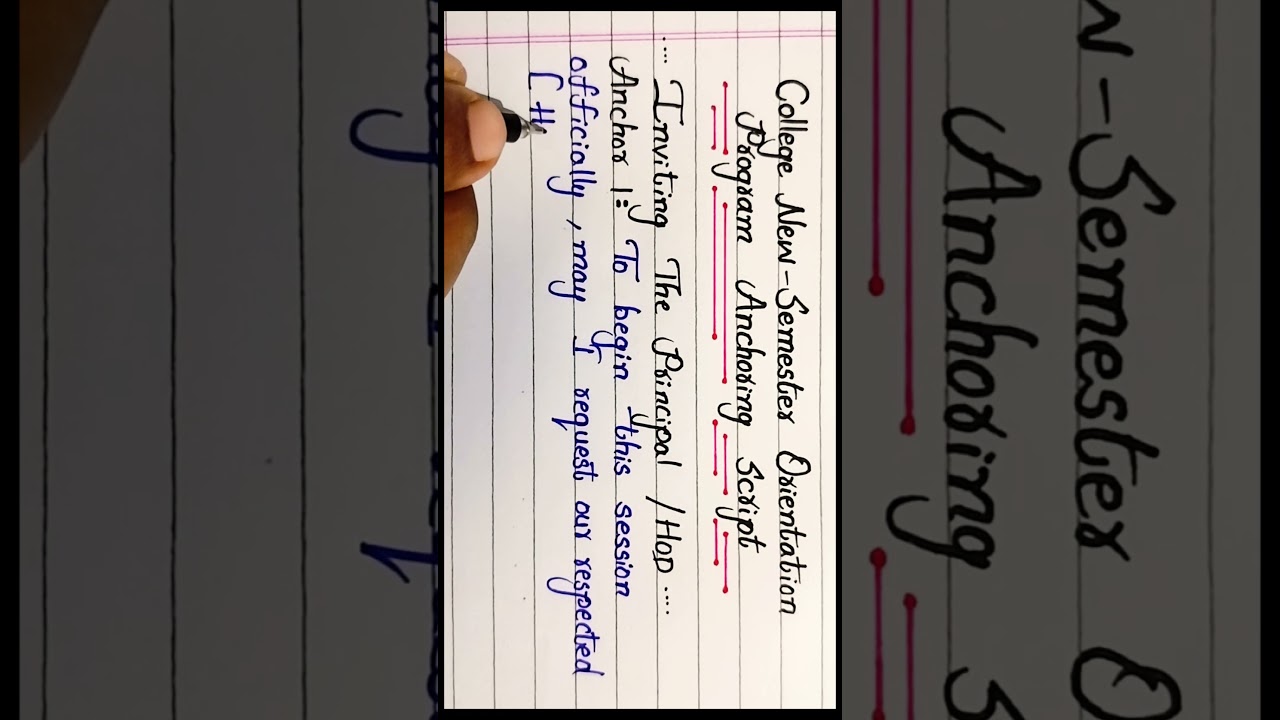 College New-Semester Orientation
Program Anchoring Script
.... Inviting The Principal /HOD ....
Anchor 1: To begin this session
officially, may I request our respected
[ H